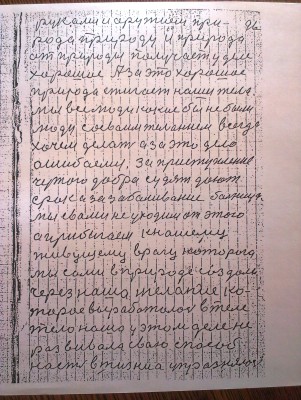 руками и оружием при-
рода природу и природа
от природы получает у дне
хорошое А за это хорошое
природа стигает наши тела
мы все люди какие бы не были
люди с своим желанием всегда
хочем делат а за это дело
ошибаемс, за приступления
чужого добра судят дают
срок а за забаливание
мы с вами не уходим от этого
а прибигаем к нашему
живущему врагу которого
мы сами в природе создали
через наша желание ко-
торое выработалос в теле
тело наша у этом деле не
развивала свою способ
ност в жизни а
96